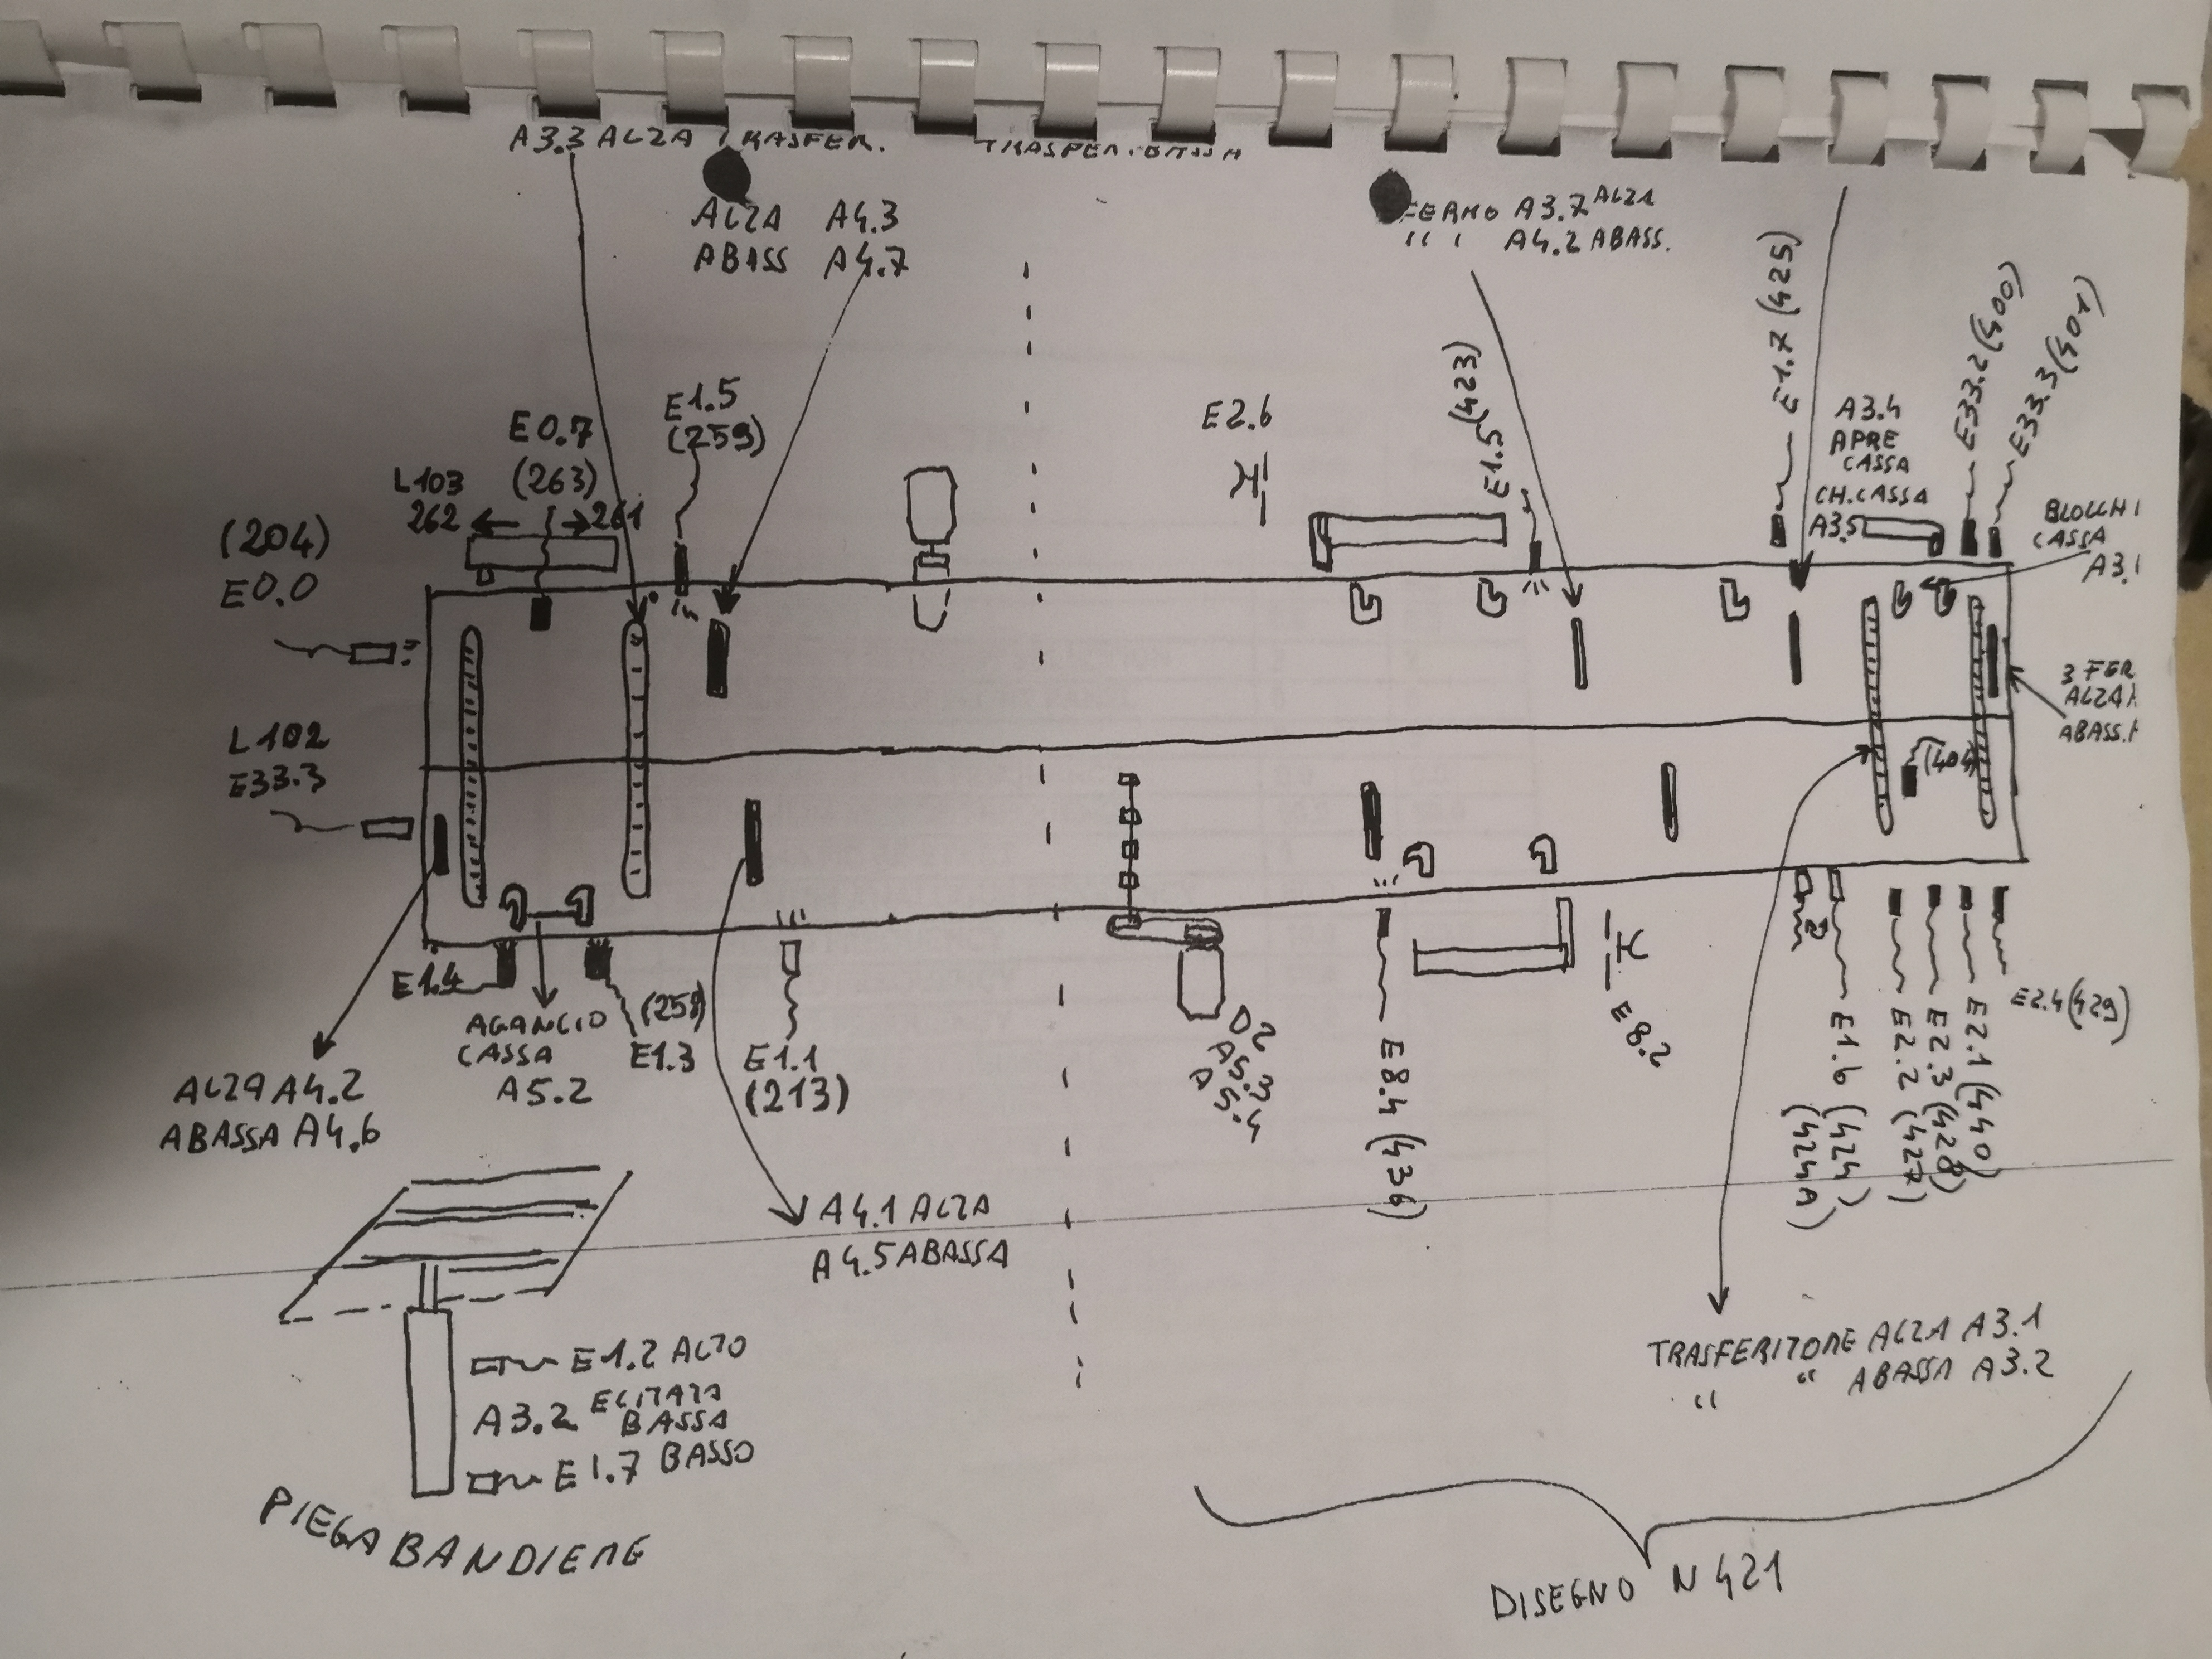 A3.3 ALZA TRASFER.
TRASFER. BASSA
ALZA A4.3
ABASS A4.7
FERMO A3.7 ALZA
" " A4.2 ABASS.
E1.7 (425)
E33.2 (400)
E33.3 (401)
E1.5
(259)
E0.7
(263)
L103
262
261
(204)
E0.0
E2.6
E1.5 (423)
A3.4
APRE
CASSA
CH.CASSA
A3.5
BLOCCHI
CASSA
A3.
3 FER
ALZA
ABASS.
L102
E33.3
(404)
E1.4
AGANCIO
CASSA
A5.2
E1.3
E1.1
(213)
D2
A5.3
A5.4
E8.4 (436)
E8.2
E1.6 (424)
(424A)
E2.2 (427)
E2.3 (428)
E2.1 (440)
E2.4 (429)
ALZA A4.2
ABASSA A4.6
A4.1 ALZA
A4.5 ABASSA
E1.2 ALTO
A3.2 ECITATA
BASSA
E1.7 BASSO
PIEGABANDIERE
TRASFERITORE ALZA A3.1
" " ABASSA A3.2
DISEGNO N 421